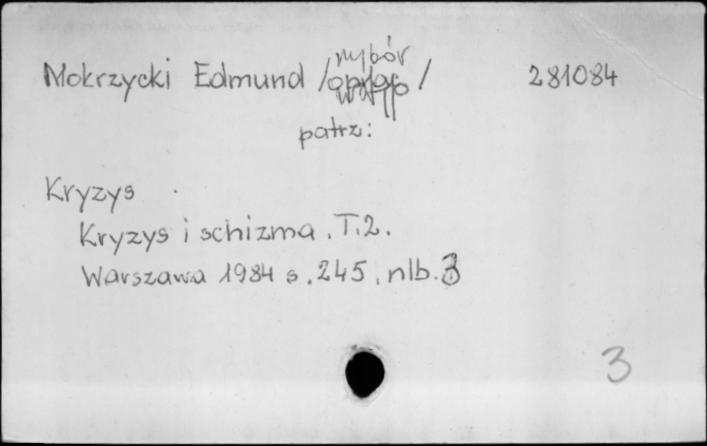 Mokrzycki Edmund /wybór/ 281084
patrz:
Kryzys
Kryzys i schizma. T.2.
Warszawa 1984 s. 245, nlb. 3
3